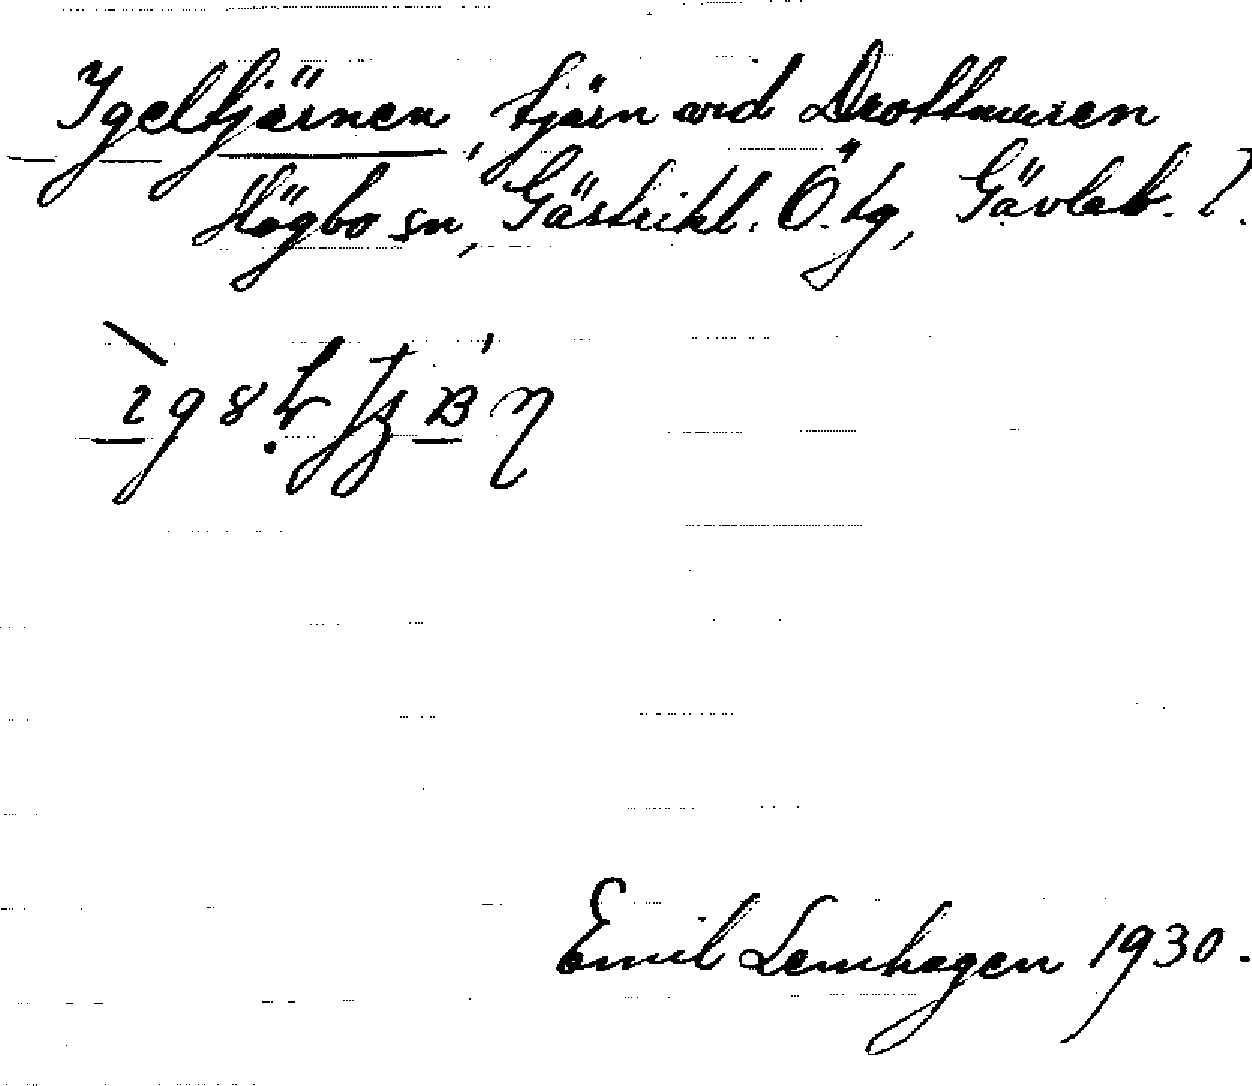 Igeltjärnen, tjärn vid Drottmuren
Högbo sn, Gästrikl. Ö. tg, Gävleb. l.
Emil Lernhagen 1930.